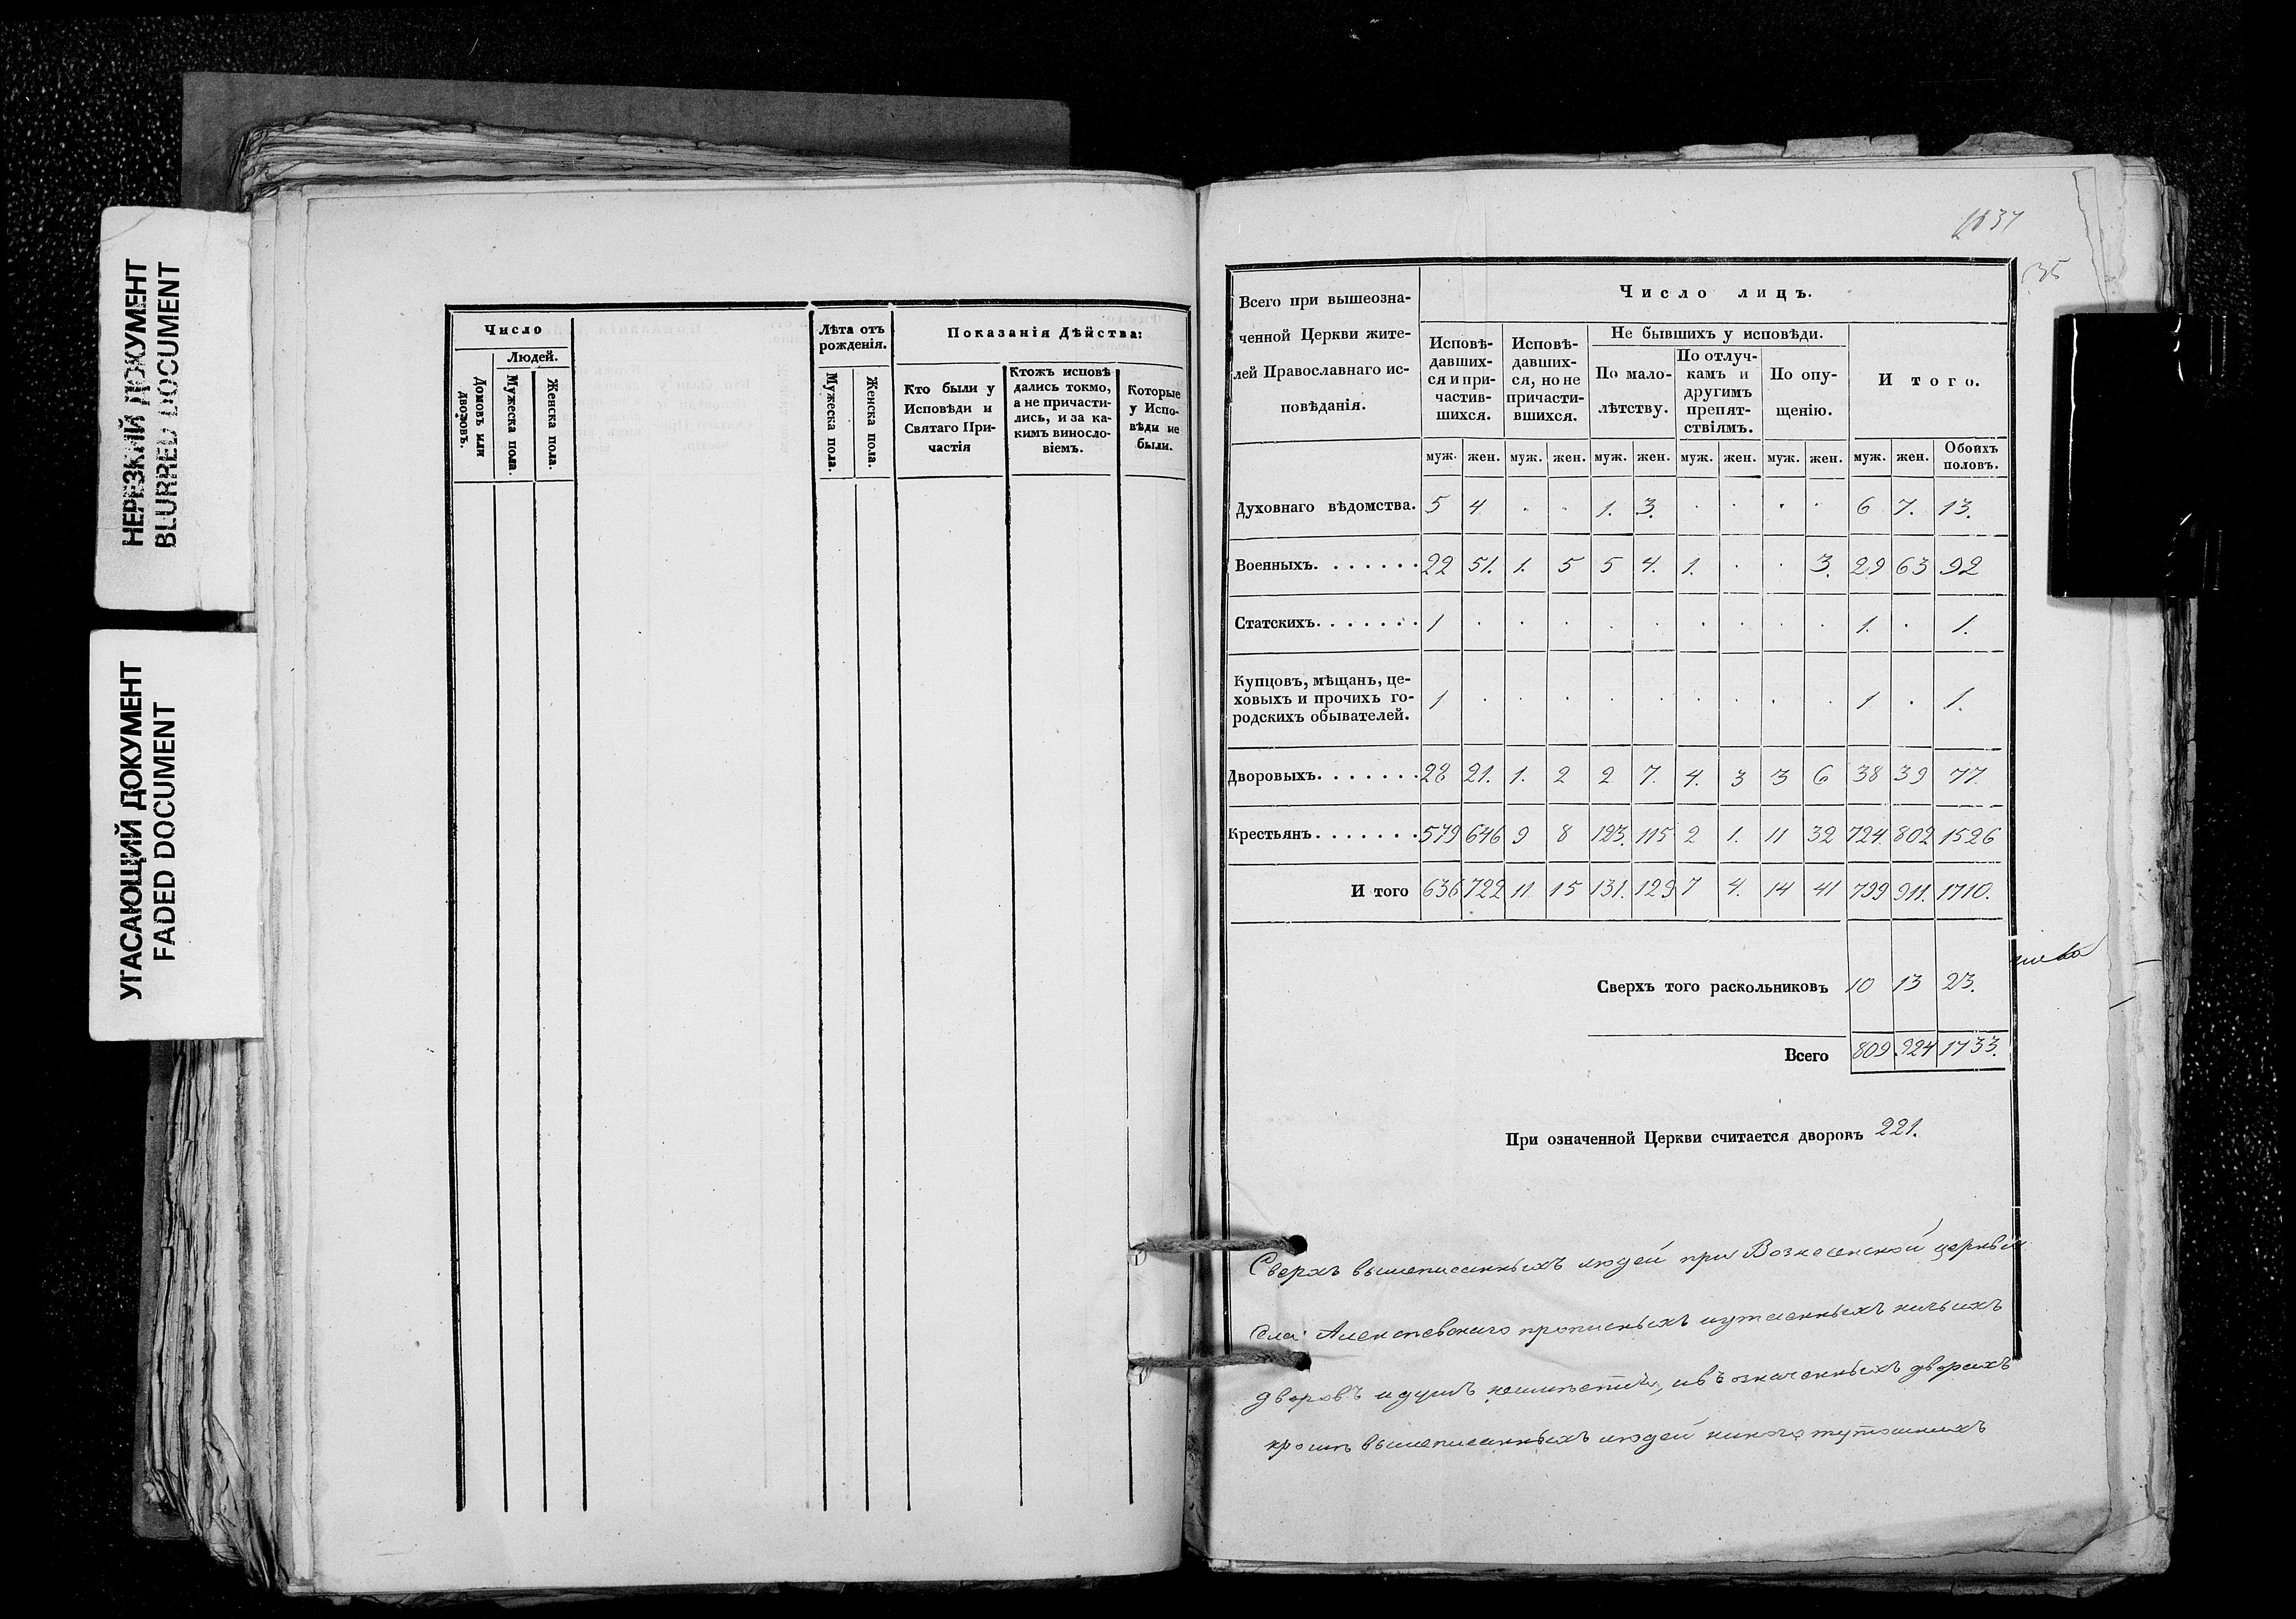 НЕРЕЗКИЙ ДОКУМЕНТ
BLURRED DOCUMENT
УГАСАЮЩИЙ ДОКУМЕНТ
FADED DOCUMENT
Число
Домовъ или дворовъ.
Людей.
Мужеска пола.
Женска пола.
Лѣта отъ рожденія.
Мужеска пола.
Женска пола.
Показанія Дѣйства:
Кто были у
Исповѣди и
Святаго При-
частія
Ктожъ исповѣ
дались токмо,
а не причасти-
лись, и за ка-
кимъ винослo-
віемъ.
Которые
у Испо-
вѣди не
были.
35
Всего при вышеозна-
ченной Церкви жите-
лей Православнаго ис-
повѣданія.
Число лицъ.
Исповѣ-
давших-
ся и при-
частив-
шихся.
Исповѣ-
давших-
ся, но не
причасти-
вшихся.
Не бывшихъ у исповѣди.
По мало-
лѣтству.
По отлуч-
камъ и
другимъ
препят-
ствіямъ.
По опу-
щенію.
Итого.
муж. жен. муж. жен. муж. жен. муж. жен. муж. жен. муж. жен. Обоихъ половъ.
Духовнаго вѣдомства. 5 4 . . 1. 3. . . . . 6 7. 13.
Военныхъ. . . . . . . 22 51. 1. 5 5 4. 1. . . 3. 29 63 92
Статскихъ. . . . . . . 1 . . . . . . . . . 1. . 1.
Купцовъ, мѣщанъ, це-
ховыхъ и прочихъ го-
родскихъ обывателей. 1 . . . . . . . . . 1 . 1.
Дворовыхъ. . . . . . . 28 21. 1. 2 2 7. 4. 3 3 6 38 39 77.
Крестьянъ. . . . . . . 579 646 9 8 123. 115 2 1. 11 32 724. 802 1526
И того 636 722 11 15 131. 129 7 4. 14 41 799 911. 1710.
Сверхъ того раскольниковъ 10 13 23.
Всего 809. 924 1733.
При означенной Церкви считается дворовъ 221.
Сверхъ вышеписанныхъ людей при Вознесенской церкви
села Алексѣевскаго прописныхъ и утаенныхъ ничьихъ
дворовъ и душъ неимѣется, и въ означенныхъ дворахъ
кромѣ вышеписанныхъ людей никого тутошнихъ